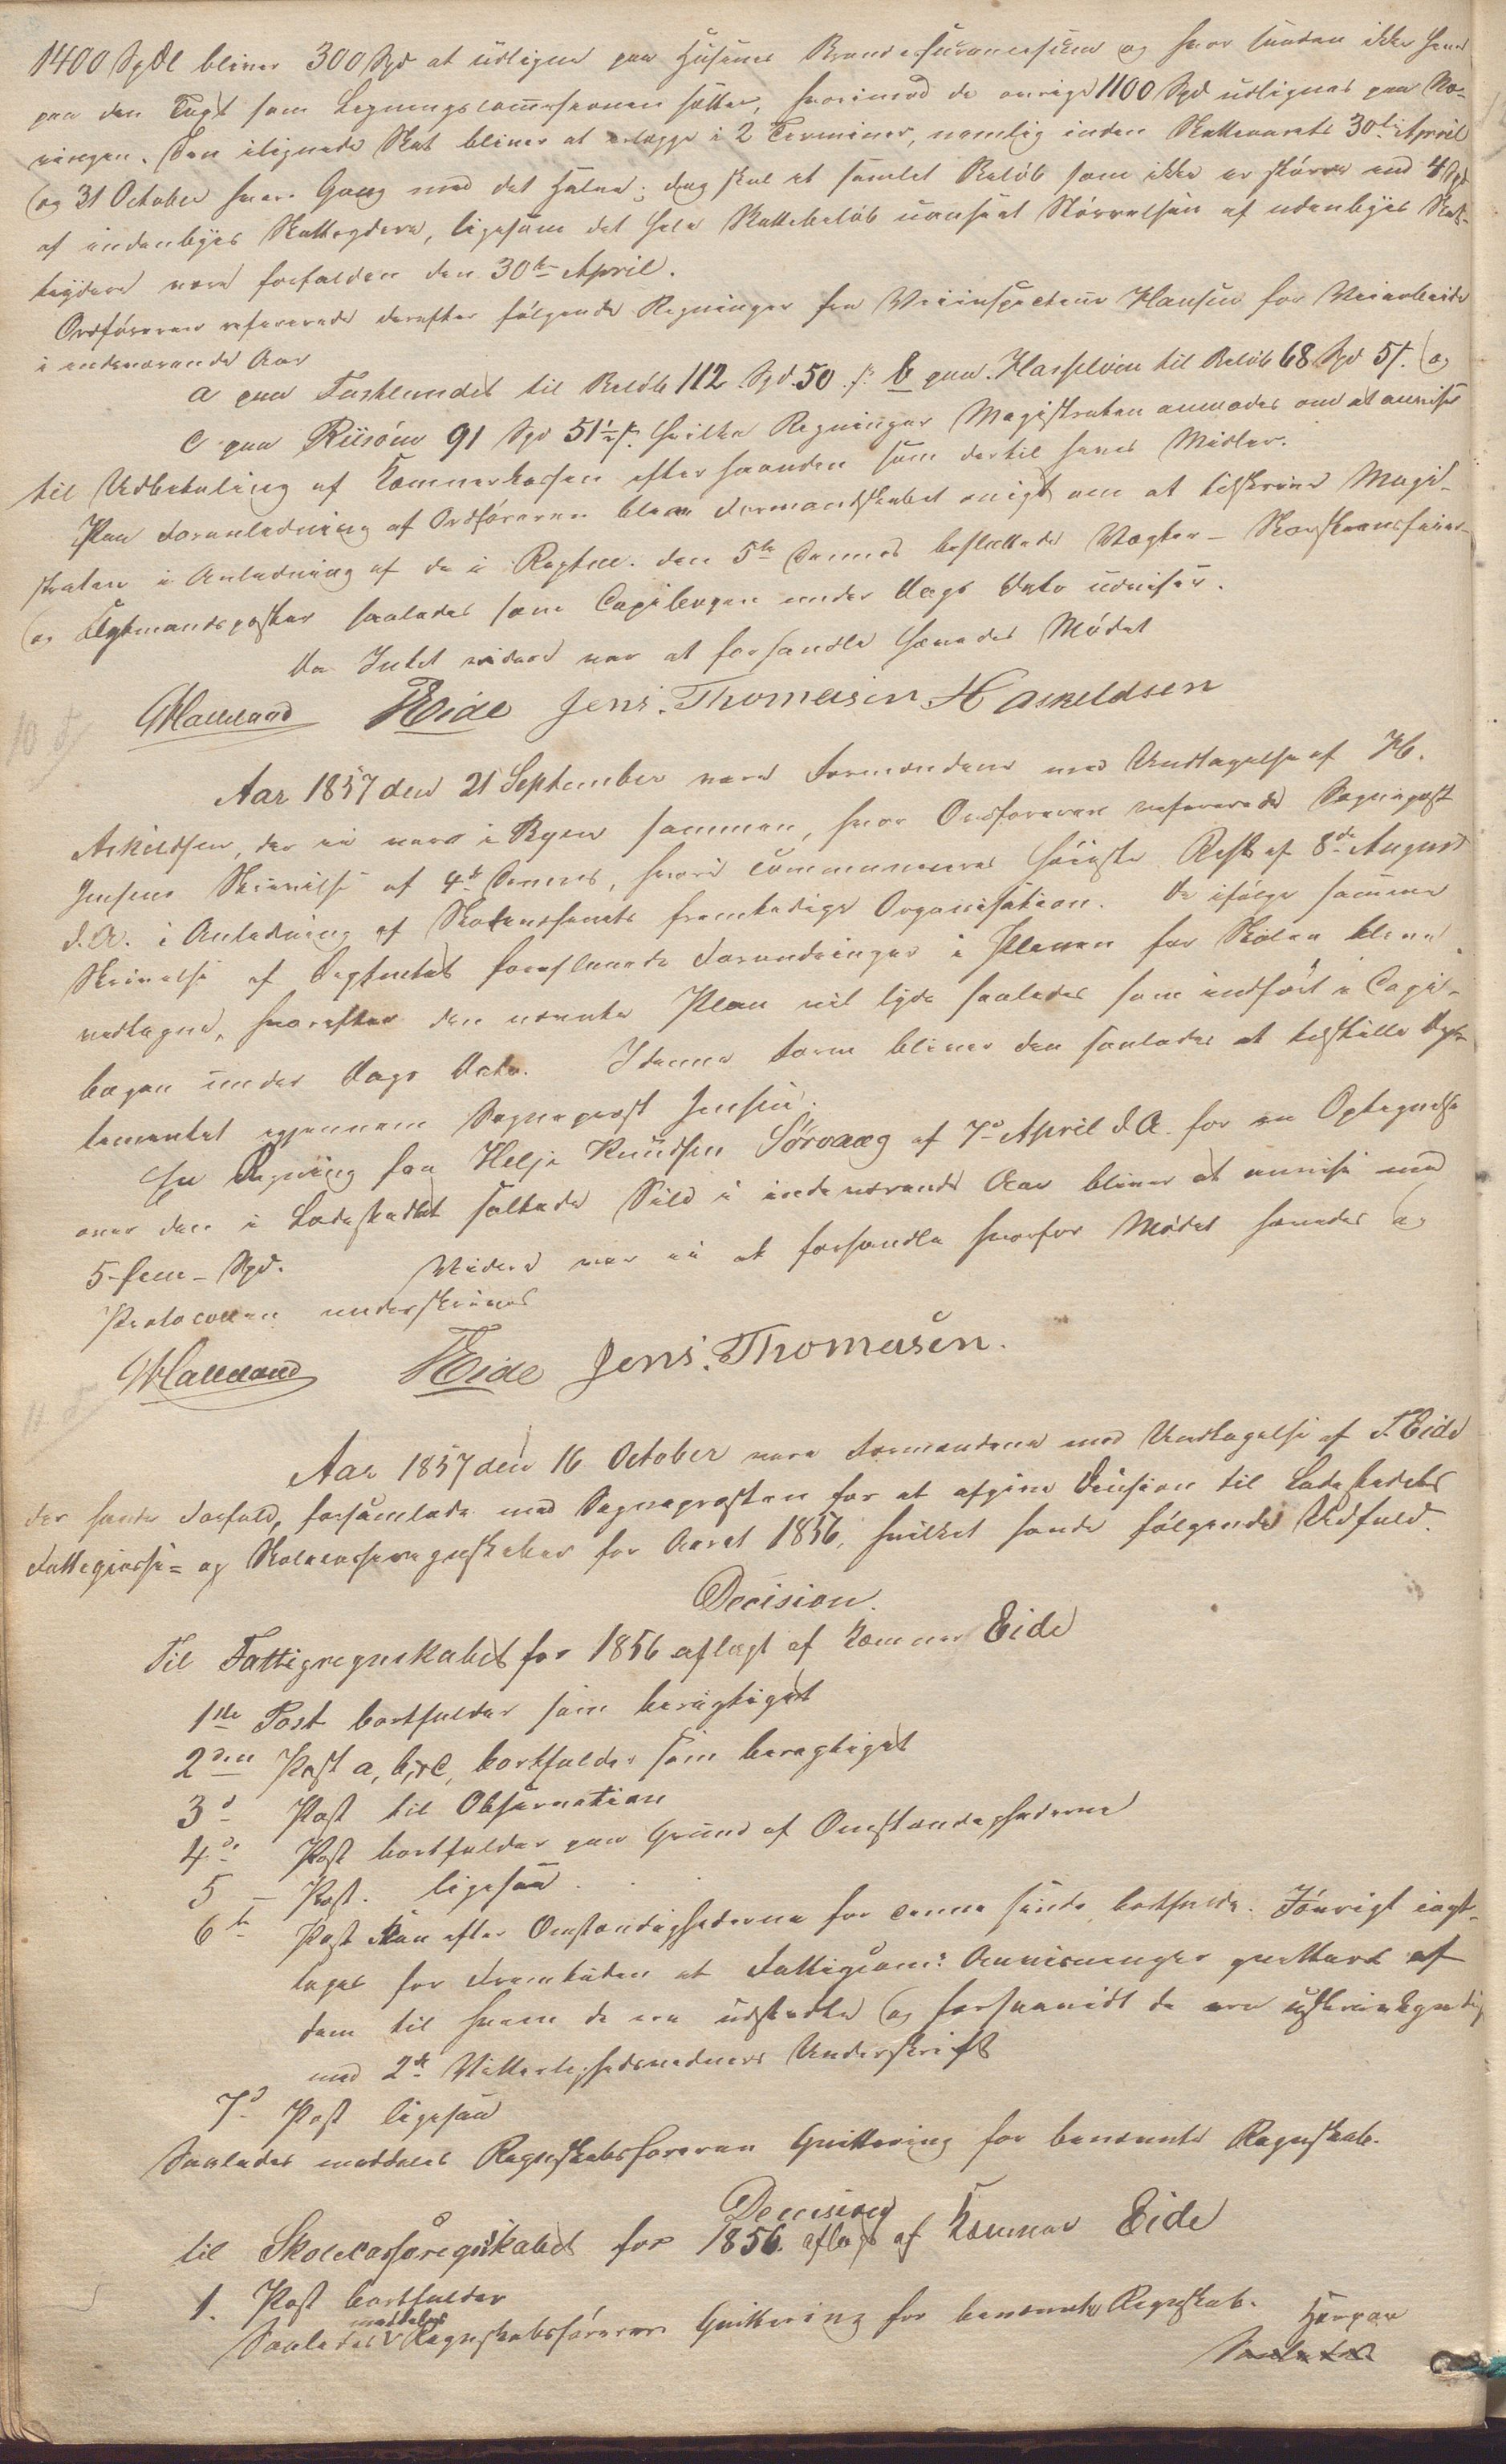 1400 SpDl bliver 300 Spd at udligne paa Husenes Brandassurancesum og hvor saadan ikke haves
paa den Taxt som Ligningscommissionen sætter, hvorimod de øvrige 1100 Spd udlignes paa Næ-
ringen. Den ilignede Skat bliver at erlægge i 2 Terminer, nemlig inden Skatteaarets 30te April
og 31 October hver Gang med det Halve; dog skal et samlet Beløb som ikke er større end 4 Spd
af indenbyes Skatteydere, ligesom det hele Skattebeløb uanseet Størrelsen af udenbyes Skat-
teydere være forfalden den 30te April.
Ordføreren refererede derefter følgende Regninger fra Veiinspecteur Hansen for Veiarbeide
i indeværende Aar
a paa Fastlandet til Beløb 112 Spd. 50 s. b paa Hasseløen til Beløb 68 Spd 5 s. og
c paa Risøen 91 Spd 51½ s. hvilke Regninger Magistraten anmodes om at anvise
til Udbetaling af Kæmnerkassen efterhaanden som dertil haves Midler.
Paa Foranledning af Ordføreren blev Formandskabet enigt om at tilskrive Magi-
straten i Anledning af de i Reptm. den 5te dennes besluttede Vægter- Skorsteensfeier-
og Lygtmandsposter saaledes som Copibogen under Dags Dato udviser.
Da Intet videre var at forhandle hævedes Mødet
GHalleland TEide Jens. Thomassen H Askeldsen
10
Aar 1857 den 21 September vare Formændene med Undtagelse af H.
Askeldsen, der ei vare i Byen sammen, hvor Ordføreren refererede Sognepræst
Jensens Skrivelse af 4de dennes, hvori communiceres høieste Resk af 8de August
d. A. i Anledning af Skolevæsenets fremtidige Organisation. De ifølge samme
Skrivelse af Deptmtet foreslaaede Forandringer i Planen for Skolen bleve
vedtagne, hvorefter den nævnte Plan vil lyde saaledes som indført i Copi-
bogen under Dags Dato. I denne Form bliver den saaledes at tilstille Dpar-
tementet igjennem Sognepræst Jensen.
En Regning fra Helje Knudsen Sørvaag af 7de April d. A. for en Optegnelse
over den i Ladestedet saltede Sild i indeværende Aar bliver at anvise med
5- fem- Spd. Videre var ei at forhandle hvorfor Mødet hævedes og
Protocollen underskrives
GHalleland TEide Jens. Thomassen.
11
Aar 1857 den 16 October vare Formændene med Undtagelse af T. Eide
der havde Forfald, forsamlede med Sognepræsten for at afgive Decision til Ladestedets
Fattigcasse- og Skolecasseregnskaber for Aaret 1856, hvilket havde følgende Udfald.
Decision.
Til Fattigregnskabet for 1856 aflagt af Kæmner Eide
1ste Post bortfalder som berigtiget
2den Post a, b, & c, bortfalder som beregtiget
3d Post til Observation
4de Post bortfalder paa Grund af Omstændighederne
5 – Post. ligesaa
6te Post kan efter Omstændighederne for denne sinde bortfalde. Iøvrigt iagt-
tages for Fremtiden at Fattigcom: Anvisninger qvitteres af
dem til hvem de ere udstedte og forsaavidt de ere uskrivekyndige
med 2de Vitterlighedsvidners Underskrift
7d Post ligesaa
Saaledes meddeles Regnskabsføreren Qvittering for benævnte Regnskab.
Decision
til Skolecasseregnskabet for 1856. aflagt af Kæmner Eide
1. Post bortfalder
Saaledes meddeles Regnskabsføreren Qvittering for benævnte Regnskab. Herpaa
Saaledes